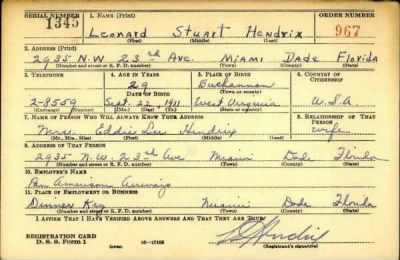 SERIAL NUMBER 1. NAME (Print) ORDER NUMBER
1345 Leonard Stuart Hendrix 967
(First) (Middle) (Last)
2. ADDRESS (Print)
2935 N.W. 23rd Ave. Miami Dade Florida
(Number and street or R. F. D. number) (Town) (County) (State)
3. TELEPHONE 4. AGE IN YEARS 5. PLACE OF BIRTH 6. COUNTRY OF CITIZENSHIP
29 Buchannon
DATE OF BIRTH (Town or county)
2-8559 Sept. 22, 1911 West Virginia U.S.A
(Exchange) (Number) (Mo.) (Day) (Yr.) (State or country)
7. NAME OF PERSON WHO WILL ALWAYS KNOW YOUR ADDRESS 8. RELATIONSHIP OF THAT PERSON
Mrs. Eddie Lee Hendrix wife
(Mr., Mrs., Miss) (First) (Middle) (Last)
9. ADDRESS OF THAT PERSON
2935 N.W. 23rd Ave Miami Dade Florida
(Number and street or R. F. D. number) (Town) (County) (State)
10. EMPLOYER'S NAME
Pan American Airways
11. PLACE OF EMPLOYMENT OR BUSINESS
Dinner Key Miami Dade Florida
(Number and street or R. F. D. number) (Town) (County) (State)
I AFFIRM THAT I HAVE VERIFIED ABOVE ANSWERS AND THAT THEY ARE TRUE.
REGISTRATION CARD
D. S. S. Form 1 (over) 16-17105 (Registrant's signature)